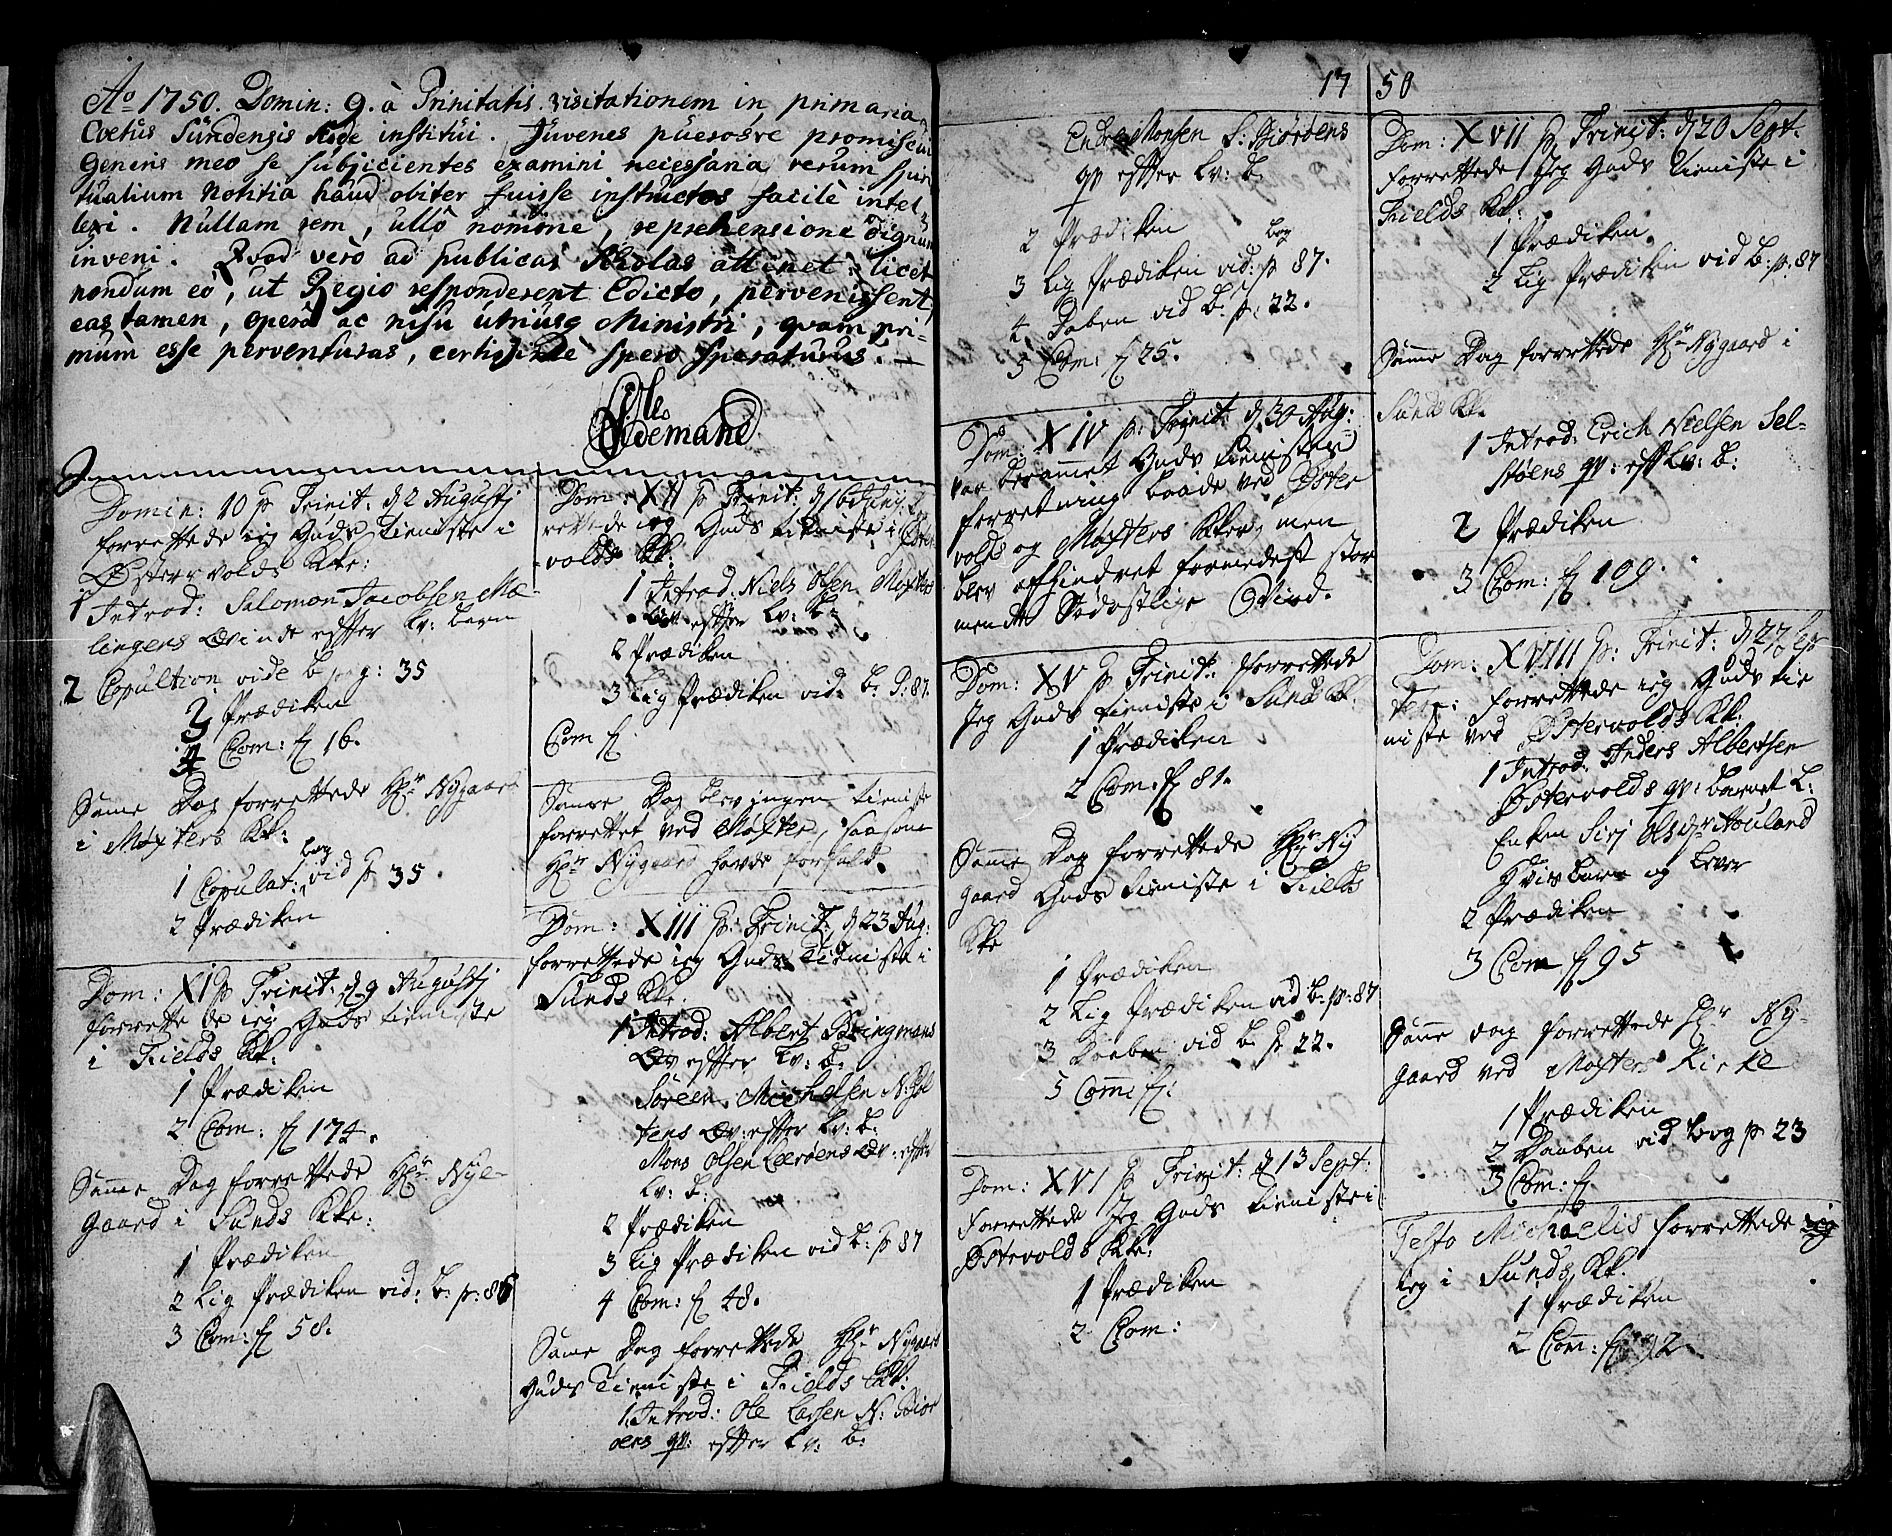 Ao 1750. Domin: 9. à Trinitatis visitationem in primaria
Coetus Sundensis Æde institui. Juvenes puerosve promiscui
Generis meo se subjicientes examini necessaria rerum spiri
tualium Notitia haud obiter fuisse instructos facilè intel
lexi. Nullam rem, ullo nomine, reprehensione dignam
inveni. Qvod verò ad publicas Skolas attinet: licet
nondum eò, ut Regio responderent Edicto, pervenissent,
eas tamen, operâ ac nisu utriusq Ministri, qvam pri-
mùm esse perventuras, certissimè spero speraturus. —
Ole
Tidemand
Domin: 10 p Trinit: d 2 Augustj
forrettede ieg Guds Tieniste i
Østervolds Kke:
1 Introd: Salomon Jacobsen Mæ-
lingens Qvinde effter Lv: barn
2 Copultion vide b pag: 35
3 Prædiken
4 Com: f 16.
Samme Dag forrettede Hr Nygaard
i Møxters Kk:
1 Copulat: vid bog p 35.
2 Prædiken
Dom: XI p Trinit: d 9 Augustj
forrettede ieg Guds tieniste
i Fields Kk:
1 Prædiken
2 Com: f 174.
Samme Dag forrettede Hr Nye-
gaard i Sunds Kke:
1 Prædiken
2 Lig Prædiken vid: b. p: 86
3 Com: f 58.
Dom: XII p Trinit: d 16 Aug. for
rettede ieg Guds tieniste i Øster
volds Kk:
1 Introd: Niels Olsen Møxters
Qv effter Lv: b:
2 Prædiken
3 Lig Prædiken vid: b: p: 87.
Com f
Samme Dag blev ingen tieniste
forrettet ved Møxter, saasom
Hr Nygaard havde forfald.
Dom: XIII p: Trinit: d 23 Aug:
forrettede ieg Guds Tieniste i
Sunds Kke.
1 Introd: Albert Bringmans
Qv effter Lv: b:
Søren Michelsen N: Hol
tens Qv: effter Lv: b:
Mons Olsen Lerøens Qv: effter
Lv: b:
2 Prædiken
3 Lig Prædiken vid b: p 87
4 Com: f 48.
Samme Dag forrettede Hr Nygaard
Guds Tieniste i Fields Kk:
1. Introd: Ole Larsen N: Biør
øens qv: effter Lv: b:
17 50
Endre Monsen S: Biørøens
qv effter Lv: b.
2 Prædiken
3 Lig Prædiken vid: bog p 87.
4. Daben vid b: p: 22.
5 Com: f 25.
Dom: XIV p: Trinit: d 30 Aug:
var berammet Guds tienistes
forretning baade ved Øster
volds og Møxters Kker, men
blev afhindret formedelst stor
mende Sydostlige Vind.
Dom: XV p Trinit: forrettede
Jeg Guds tieniste i Sunds Kk.
1 Prædiken
2 Com: f 81.
Samme Dag forrettede Hr Ny
gaard Guds tieniste i Fields
Kke
1 Prædiken
2 Lig Prædiken vid b: p: 87
3 Daaben vid b. p 22.
5 Comm: f:
Dom: XVI p Trinit: d 13 Sept:
forrettede Jeg Guds tieniste i
Østervolds Kke:
1 Prædiken
2 Com:
Dom: XVII p Trinit: d 20 Sept.
forrettede Jeg Guds tieniste i
Fields Kk:
1 Prædiken.
2 Lig Prædiken vid b: p: 87
Samme Dag forrettede Hr Nygaard i
Sunds Kk.
1 Introd: Erich Nielsen Sel-
støens qv: eff Lv: b:
2 Prædiken
3 Com: f 109.
Dom: XVIII p: Trinit: d 27 Sep
tem: forrettede ieg Guds tie
niste ved Østervolds Kk:
1 Introd: Anders Albertsen
Østervolds qv: barnet L:
Enken Sirj Olsdr Houland
hvis barn og lever
2 Prædiken
3 Com f 95
Samme dag forrettede Hr Ny-
gaard ved Møxters Kirke
1 Prædiken
2 Daaben vid bog p 23
3 Com: f.
Festo Michaelis forrettede
ieg i Sunds Kk.
1 Prædiken
2 Com: f 92